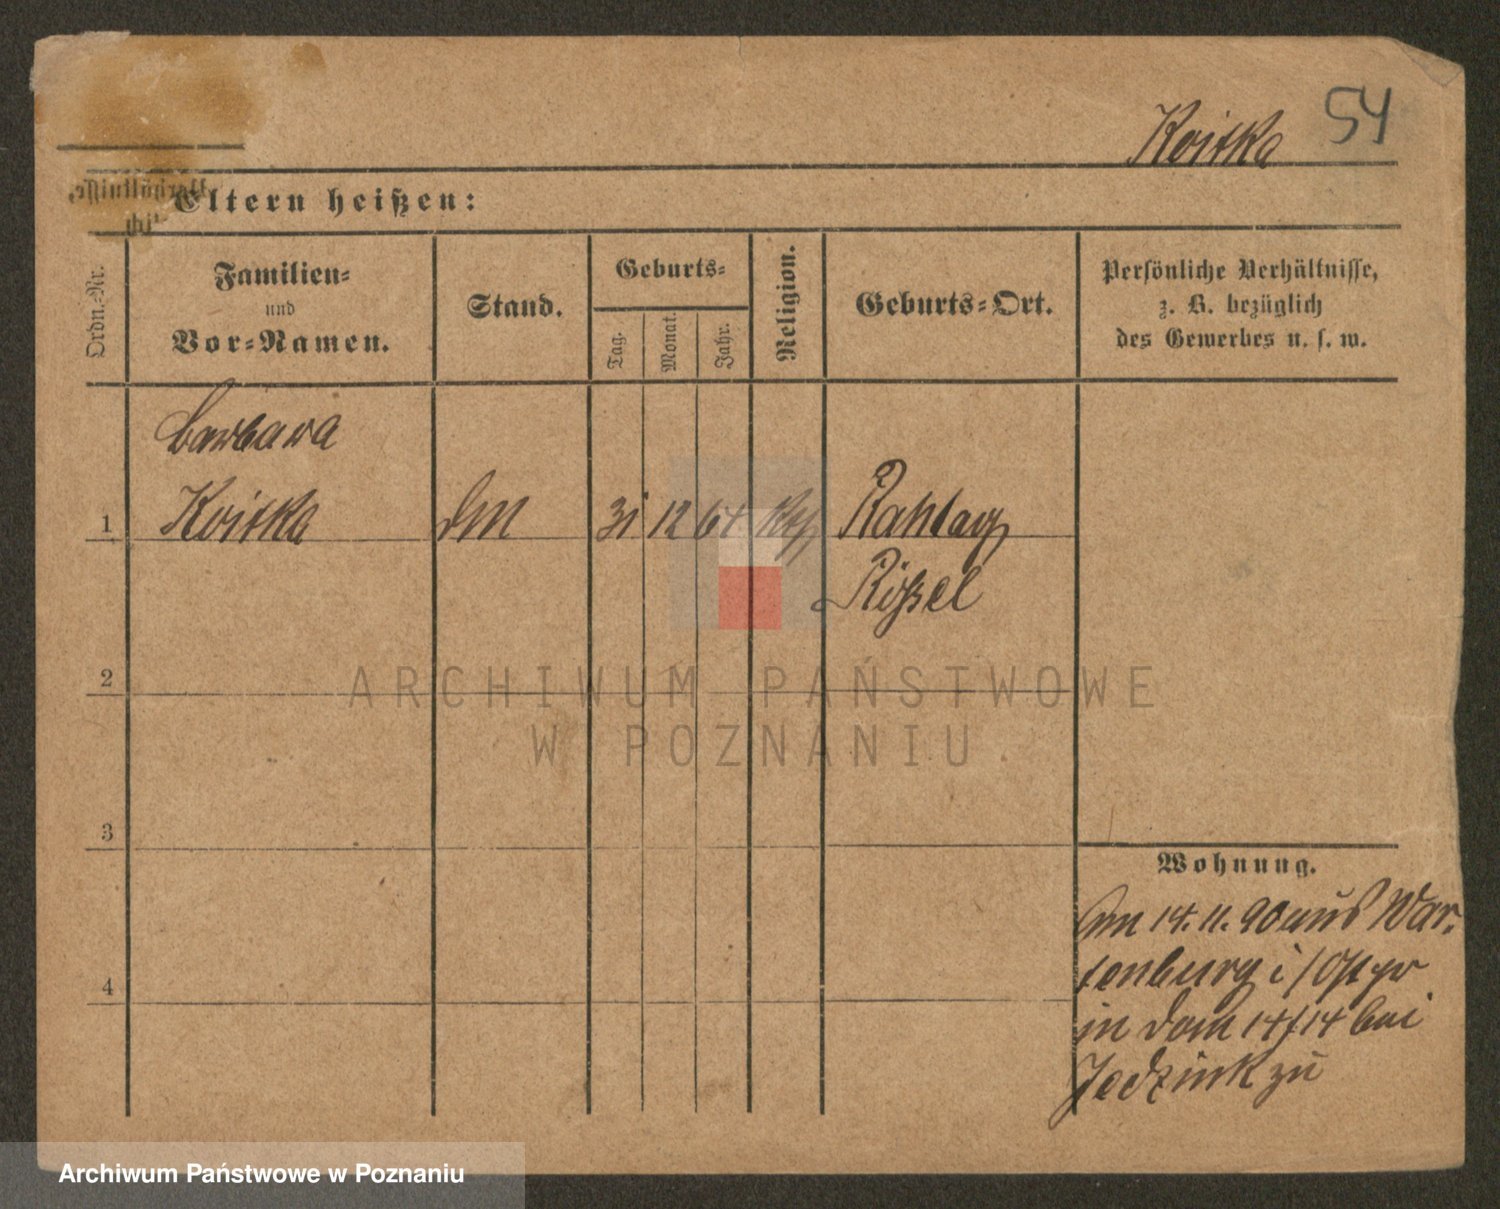 Koitka 54
Eltern heißen:
Ordn.-Nr.
Familien-
und
Vor-Namen.
Stand.
Geburts-
Tag.
Monat.
Jahr.
Religion.
Geburts-Ort.
Persönliche Verhältnisse,
z. B. bezüglich
des Gewerbes u. s. w.
Barbara
1 Koitka 31 12 64 kth
Rößel
2
3
4
Wohnung.
Am 14. 11. 90 aus War-
tenburg i/Ostpr
in Dom 14/14 bei
Jedzink zu
ARCHIWUM PAŃSTWOWE
W POZNANIU
Archiwum Państwowe w Poznaniu